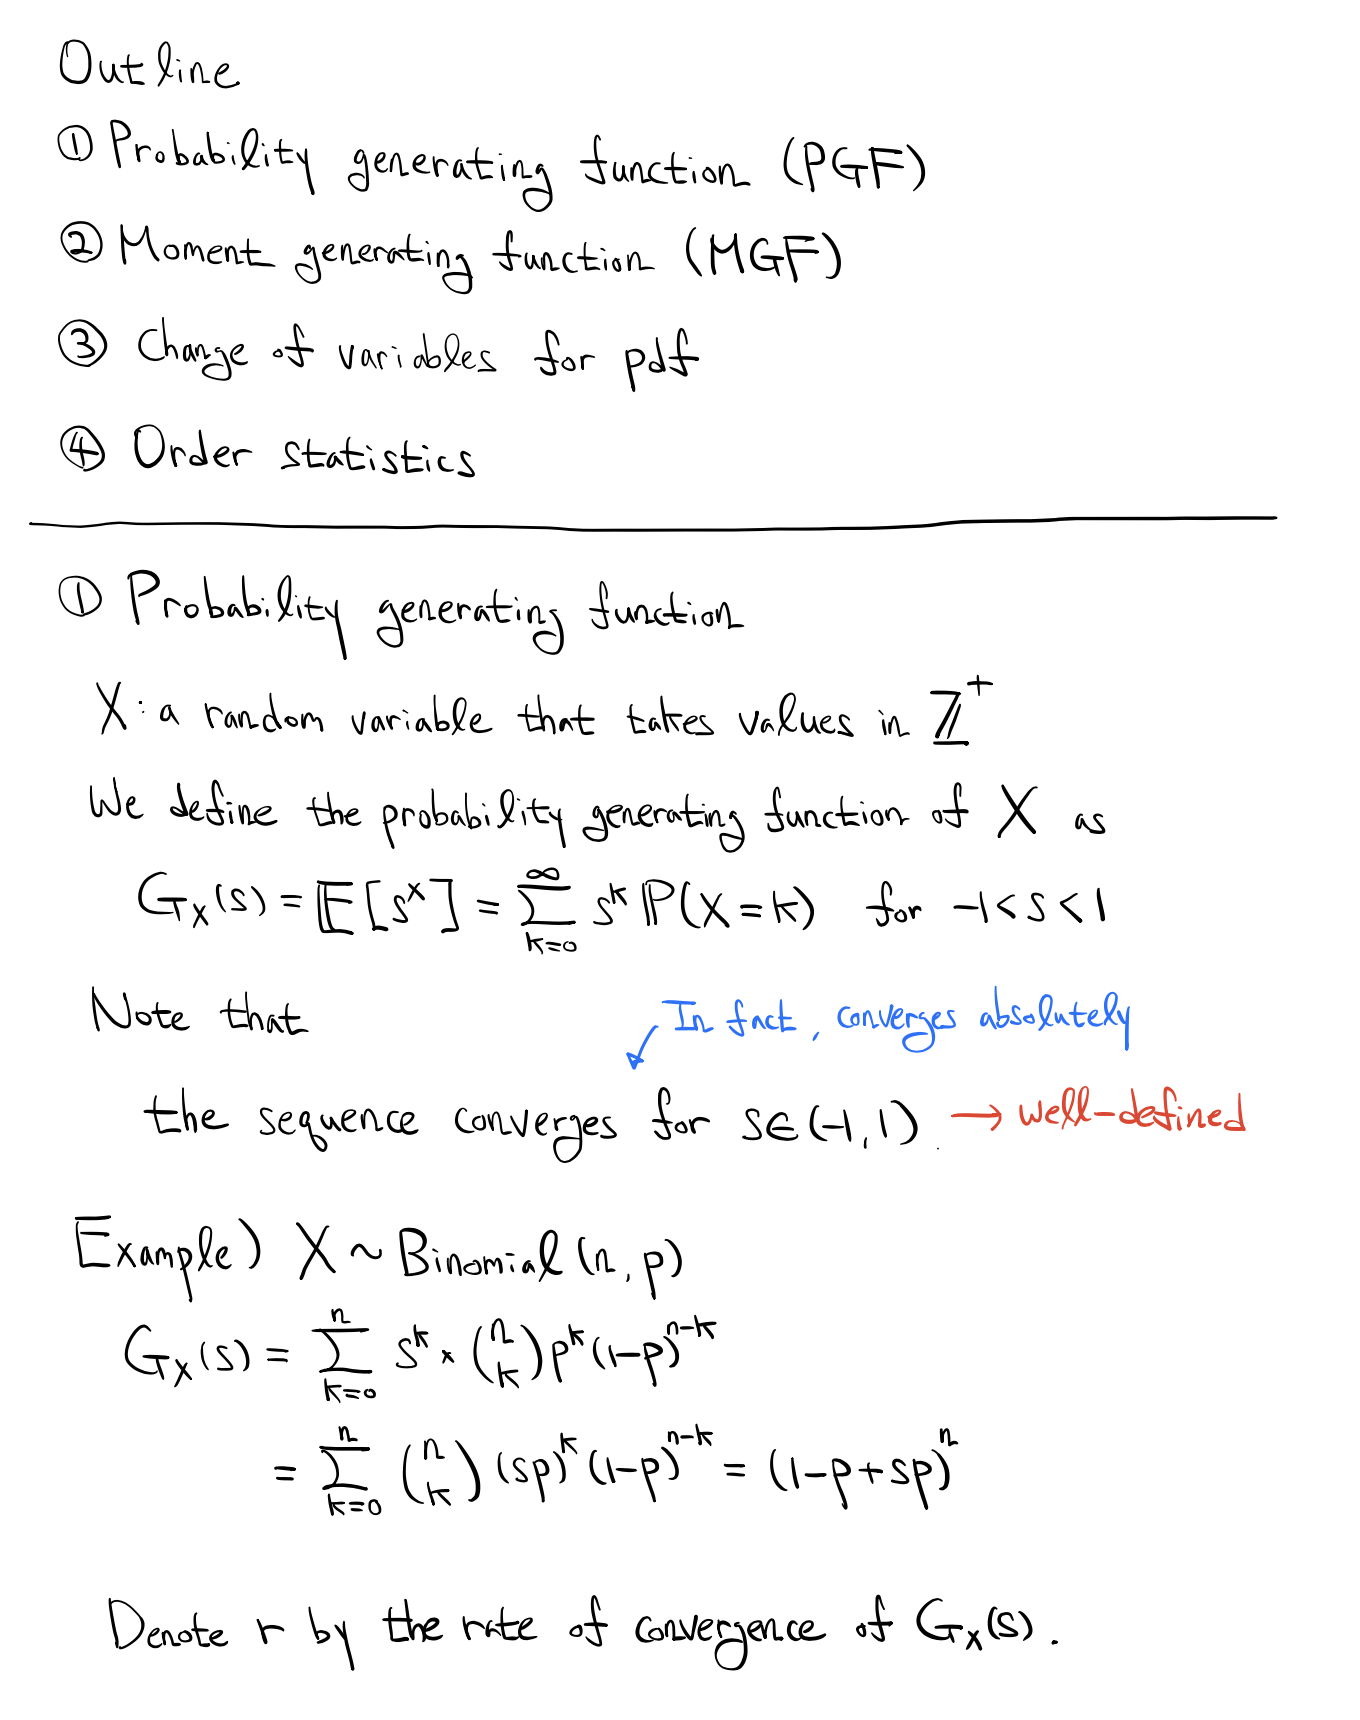 Outline
① Probability generating function (PGF)
② Moment generating function (MGF)
③ Change of variables for pdf
④ Order statistics
① Probability generating function
X : a random variable that takes values in ℤ⁺
We define the probability generating function of X as
G_X(s) = 𝔼[s^X] = ∑_{k=0}^{∞} s^k ℙ(X=k) for -1<s<1
Note that
In fact, converges absolutely
the sequence converges for s∈(-1,1). → well-defined
Example) X ~ Binomial(n,p)
G_X(s) = ∑_{k=0}^{n} s^k × (n k) p^k (1-p)^{n-k}
= ∑_{k=0}^{n} (n k) (sp)^k (1-p)^{n-k} = (1-p+sp)^n
Denote r by the rate of convergence of G_X(s).